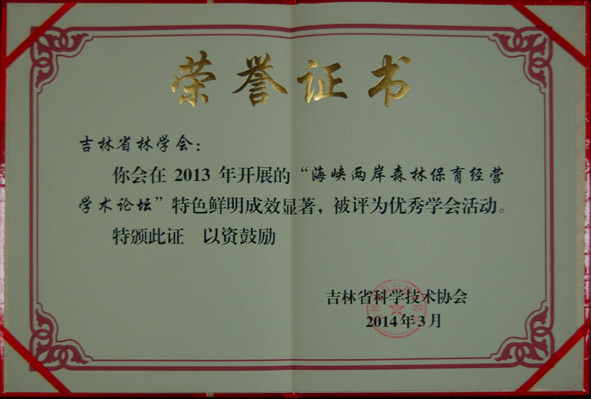 荣誉证书
吉林省林学会：
你会在 2013 年开展的“海峡两岸森林保育经营
学术论坛”特色鲜明成效显著，被评为优秀学会活动。
特颁此证 以资鼓励
吉林省科学技术协会
2014年3月